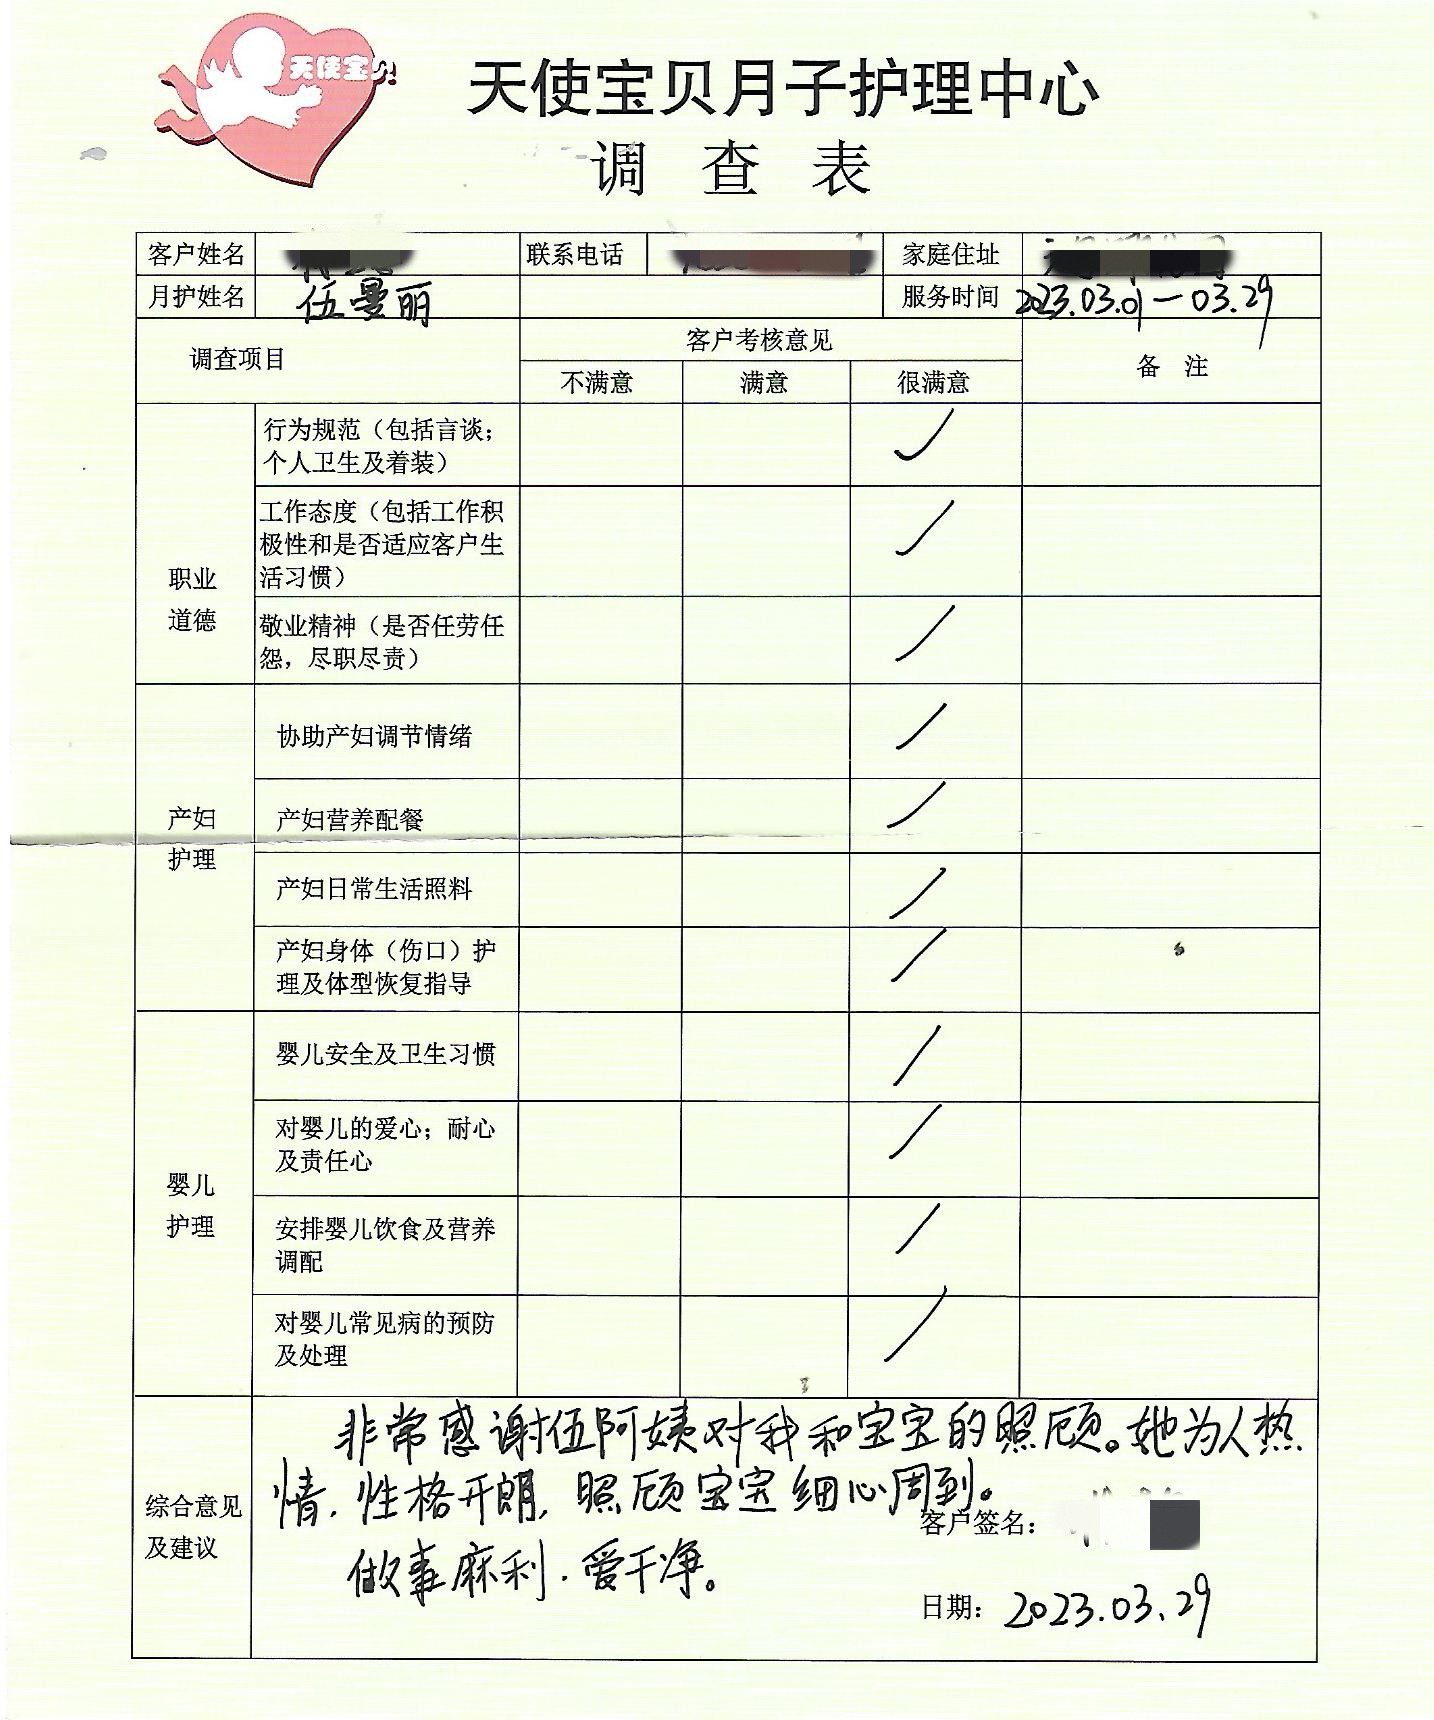 天使宝贝
天使宝贝月子护理中心
调 查 表
客户姓名 联系电话 家庭住址
月护姓名 伍曼丽 服务时间 2023.03.01—03.29
调查项目 客户考核意见 备 注
不满意 满意 很满意
职业
道德
行为规范（包括言谈；
个人卫生及着装）
工作态度（包括工作积
极性和是否适应客户生
活习惯）
敬业精神（是否任劳任
怨，尽职尽责）
产妇
护理
协助产妇调节情绪
产妇营养配餐
产妇日常生活照料
产妇身体（伤口）护
理及体型恢复指导
婴儿
护理
婴儿安全及卫生习惯
对婴儿的爱心；耐心
及责任心
安排婴儿饮食及营养
调配
对婴儿常见病的预防
及处理
综合意见
及建议
非常感谢伍阿姨对我和宝宝的照顾。她为人热
情，性格开朗，照顾宝宝细心周到。
做事麻利，爱干净。
客户签名：
日期：2023.03.29